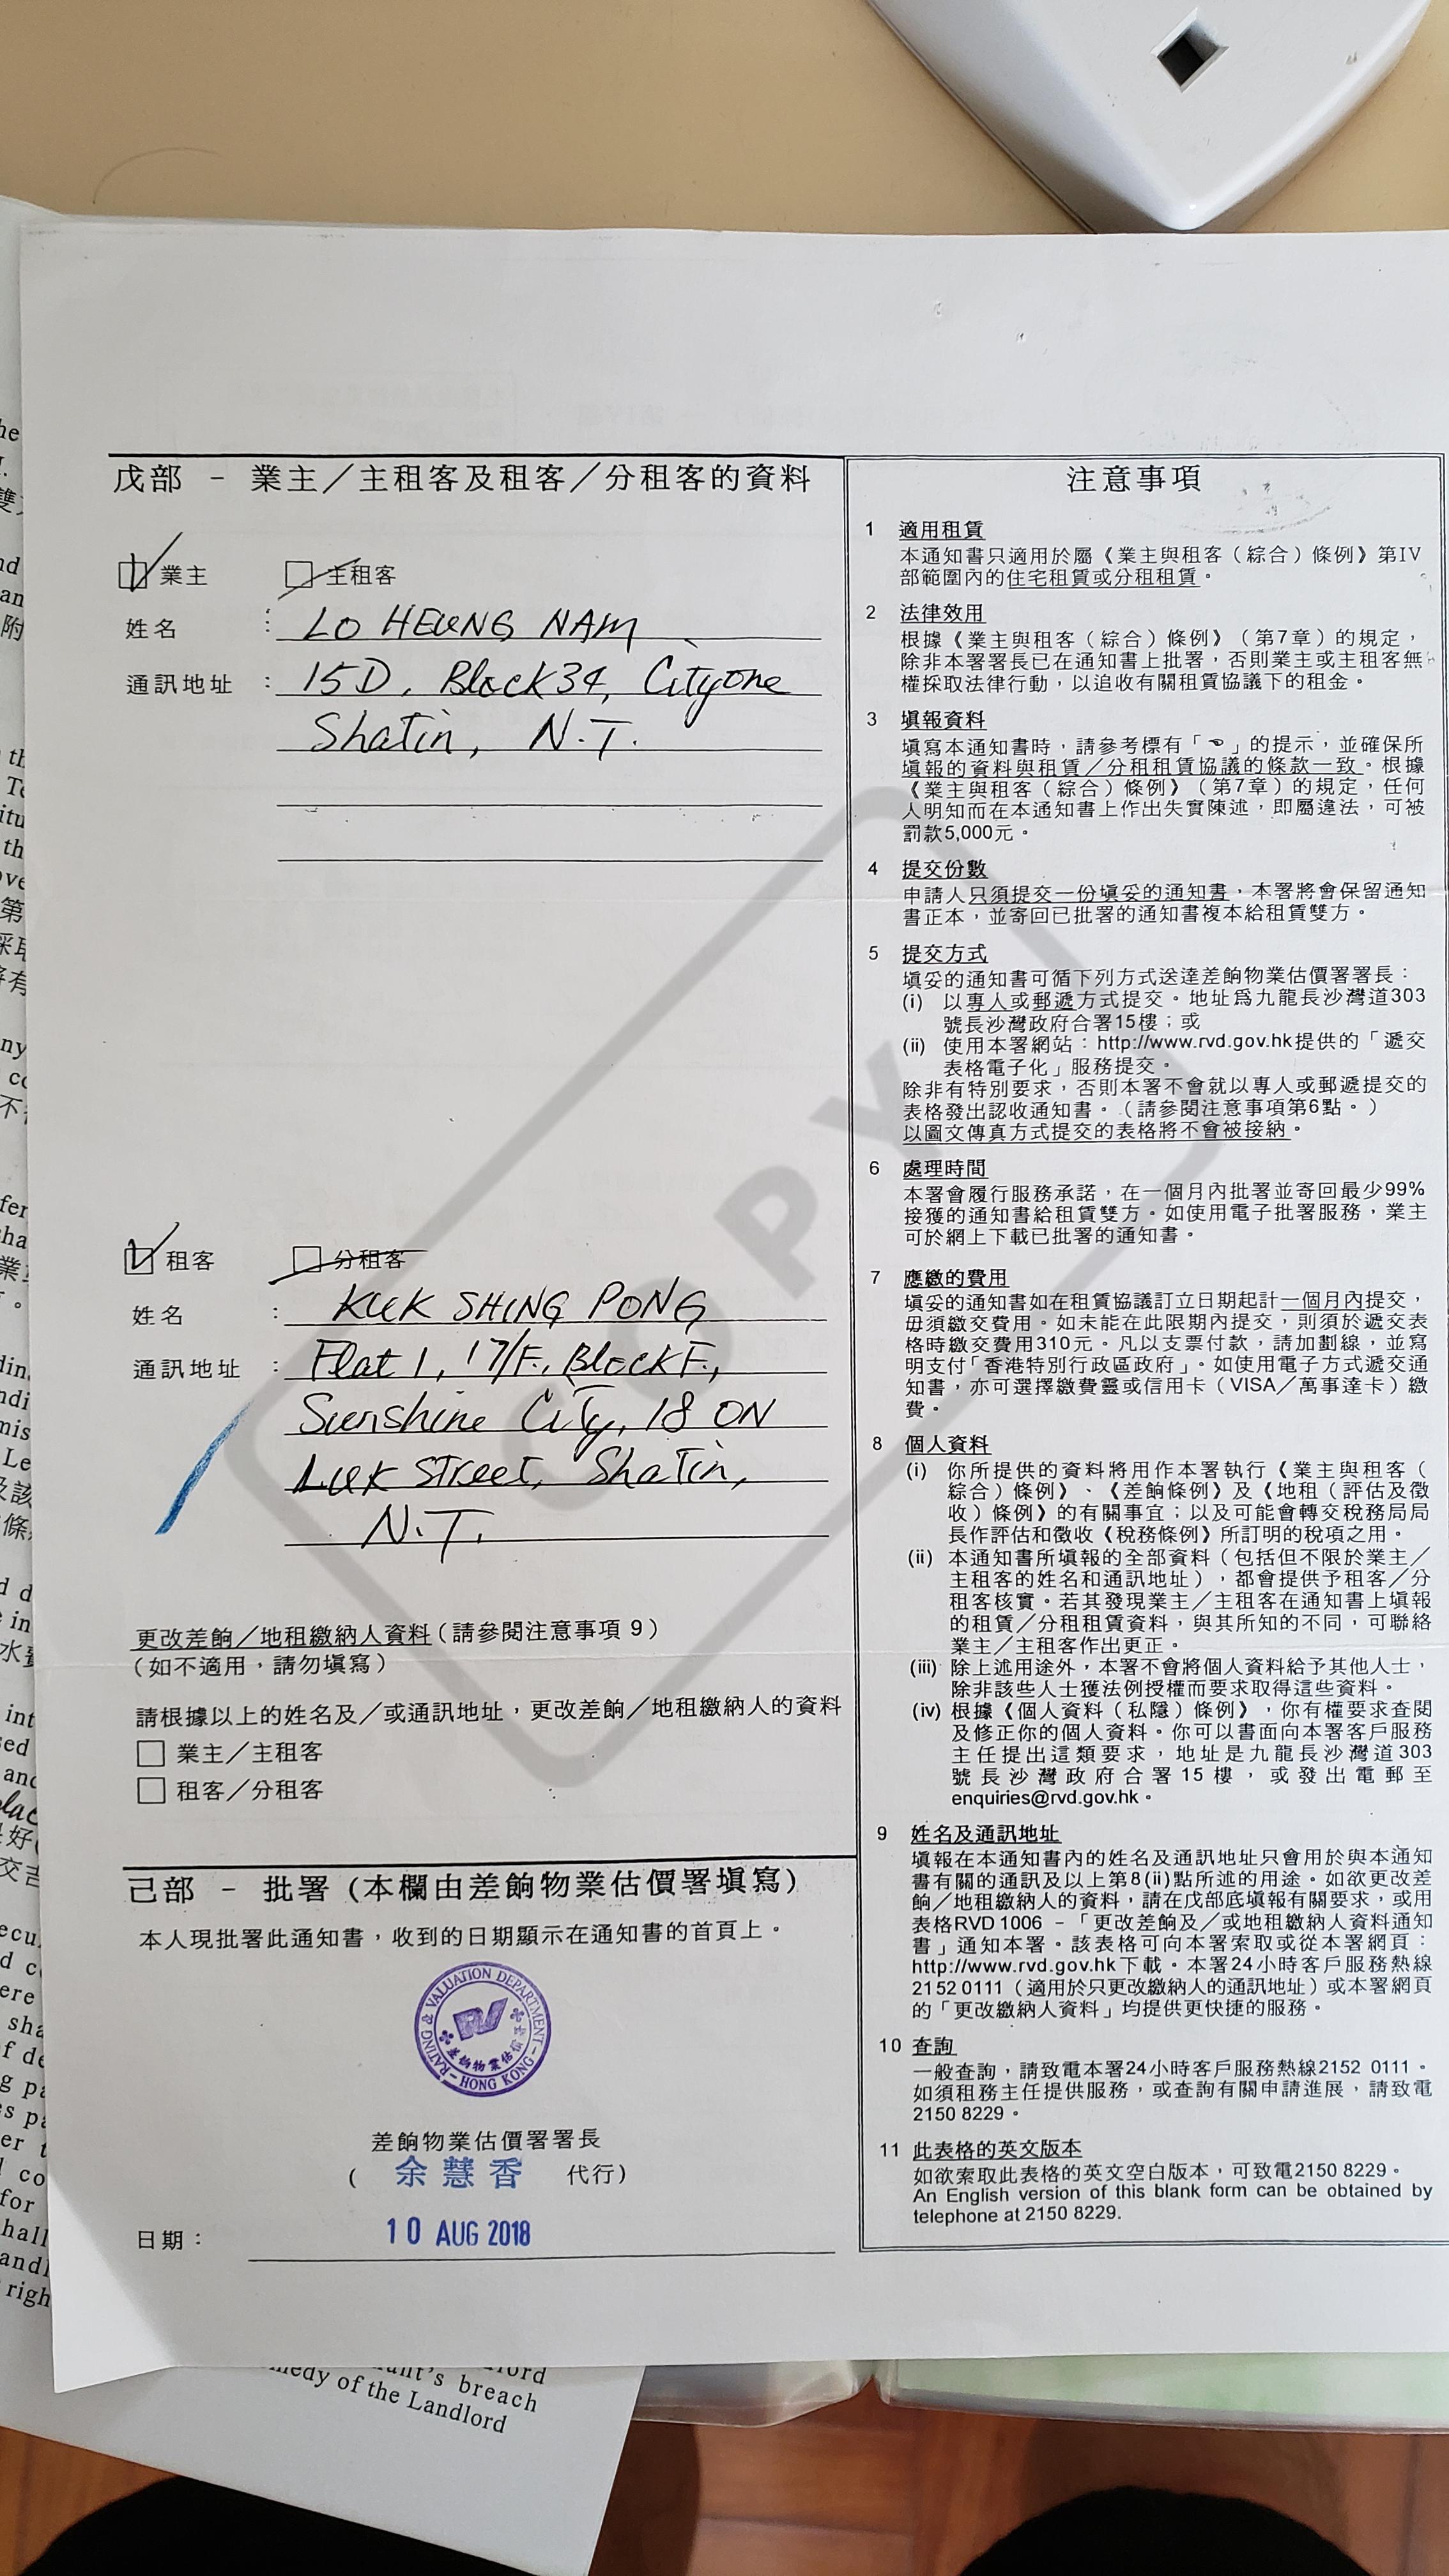 戊部 - 業主／主租客及租客／分租客的資料
業主 主租客
姓名 : LO HEUNG NAM
通訊地址 : 15D, Block 34, Cityone
Shatin, N.T.
租客 分租客
姓名 : KUK SHING PONG
通訊地址 : Flat 1, 17/F., Block F.,
Sunshine City, 18 ON
LUK Street, Shatin,
N.T.
更改差餉／地租繳納人資料（請參閱注意事項 9）
（如不適用，請勿填寫）
請根據以上的姓名及／或通訊地址，更改差餉／地租繳納人的資料
業主／主租客
租客／分租客
己部 - 批署 (本欄由差餉物業估價署填寫)
本人現批署此通知書，收到的日期顯示在通知書的首頁上。
RATING & VALUATION DEPARTMENT
RV
差餉物業估價署
HONG KONG
差餉物業估價署署長
( 余慧香 代行)
日期： 10 AUG 2018
注意事項
1 適用租賃
本通知書只適用於屬《業主與租客（綜合）條例》第IV
部範圍內的住宅租賃或分租租賃。
2 法律效用
根據《業主與租客（綜合）條例》（第7章）的規定，
除非本署署長已在通知書上批署，否則業主或主租客無
權採取法律行動，以追收有關租賃協議下的租金。
3 填報資料
填寫本通知書時，請參考標有「☜」的提示，並確保所
填報的資料與租賃／分租租賃協議的條款一致。根據
《業主與租客（綜合）條例》（第7章）的規定，任何
人明知而在本通知書上作出失實陳述，即屬違法，可被
罰款5,000元。
4 提交份數
申請人只須提交一份填妥的通知書，本署將會保留通知
書正本，並寄回已批署的通知書複本給租賃雙方。
5 提交方式
填妥的通知書可循下列方式送達差餉物業估價署署長：
(i) 以專人或郵遞方式提交。地址爲九龍長沙灣道303
號長沙灣政府合署15樓；或
(ii) 使用本署網站：http://www.rvd.gov.hk提供的「遞交
表格電子化」服務提交。
除非有特別要求，否則本署不會就以專人或郵遞提交的
表格發出認收通知書。（請參閱注意事項第6點。）
以圖文傳真方式提交的表格將不會被接納。
6 處理時間
本署會履行服務承諾，在一個月內批署並寄回最少99%
接獲的通知書給租賃雙方。如使用電子批署服務，業主
可於網上下載已批署的通知書。
7 應繳的費用
填妥的通知書如在租賃協議訂立日期起計一個月內提交，
毋須繳交費用。如未能在此限期內提交，則須於遞交表
格時繳交費用310元。凡以支票付款，請加劃線，並寫
明支付「香港特別行政區政府」。如使用電子方式遞交通
知書，亦可選擇繳費靈或信用卡（VISA／萬事達卡）繳
費。
8 個人資料
(i) 你所提供的資料將用作本署執行《業主與租客（
綜合）條例》、《差餉條例》及《地租（評估及徵
收）條例》的有關事宜；以及可能會轉交稅務局局
長作評估和徵收《稅務條例》所訂明的稅項之用。
(ii) 本通知書所填報的全部資料（包括但不限於業主／
主租客的姓名和通訊地址），都會提供予租客／分
租客核實。若其發現業主／主租客在通知書上填報
的租賃／分租租賃資料，與其所知的不同，可聯絡
業主／主租客作出更正。
(iii) 除上述用途外，本署不會將個人資料給予其他人士，
除非該些人士獲法例授權而要求取得這些資料。
(iv) 根據《個人資料（私隱）條例》，你有權要求查閱
及修正你的個人資料。你可以書面向本署客戶服務
主任提出這類要求，地址是九龍長沙灣道303
號長沙灣政府合署15樓，或發出電郵至
enquiries@rvd.gov.hk。
9 姓名及通訊地址
填報在本通知書內的姓名及通訊地址只會用於與本通知
書有關的通訊及以上第8(ii)點所述的用途。如欲更改差
餉／地租繳納人的資料，請在戊部底填報有關要求，或用
表格RVD 1006 -「更改差餉及／或地租繳納人資料通知
書」通知本署。該表格可向本署索取或從本署網頁：
http://www.rvd.gov.hk下載。本署24小時客戶服務熱線
2152 0111（適用於只更改繳納人的通訊地址）或本署網頁
的「更改繳納人資料」均提供更快捷的服務。
10 查詢
一般查詢，請致電本署24小時客戶服務熱線2152 0111。
如須租務主任提供服務，或查詢有關申請進展，請致電
2150 8229。
11 此表格的英文版本
如欲索取此表格的英文空白版本，可致電2150 8229。
An English version of this blank form can be obtained by
telephone at 2150 8229.
COPY
breach
medy of the Landlord